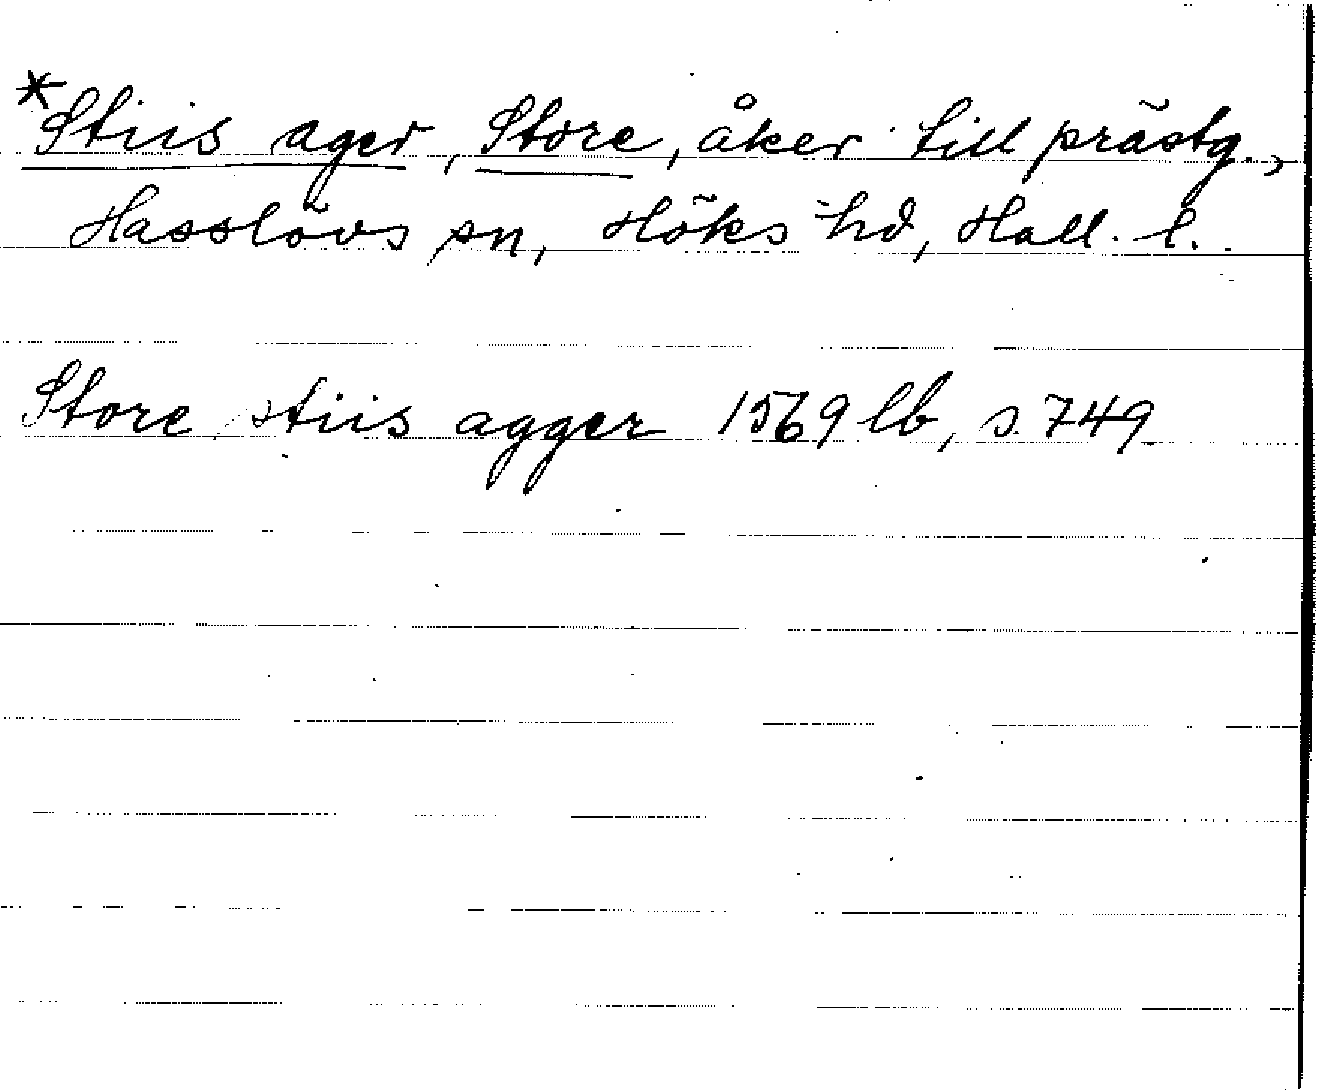 *Stiis ager, Store, åker till prästg.,
Hasslövs sn, Höks hd, Hall. l.
Store stiis agger 1569 lb, s. 749